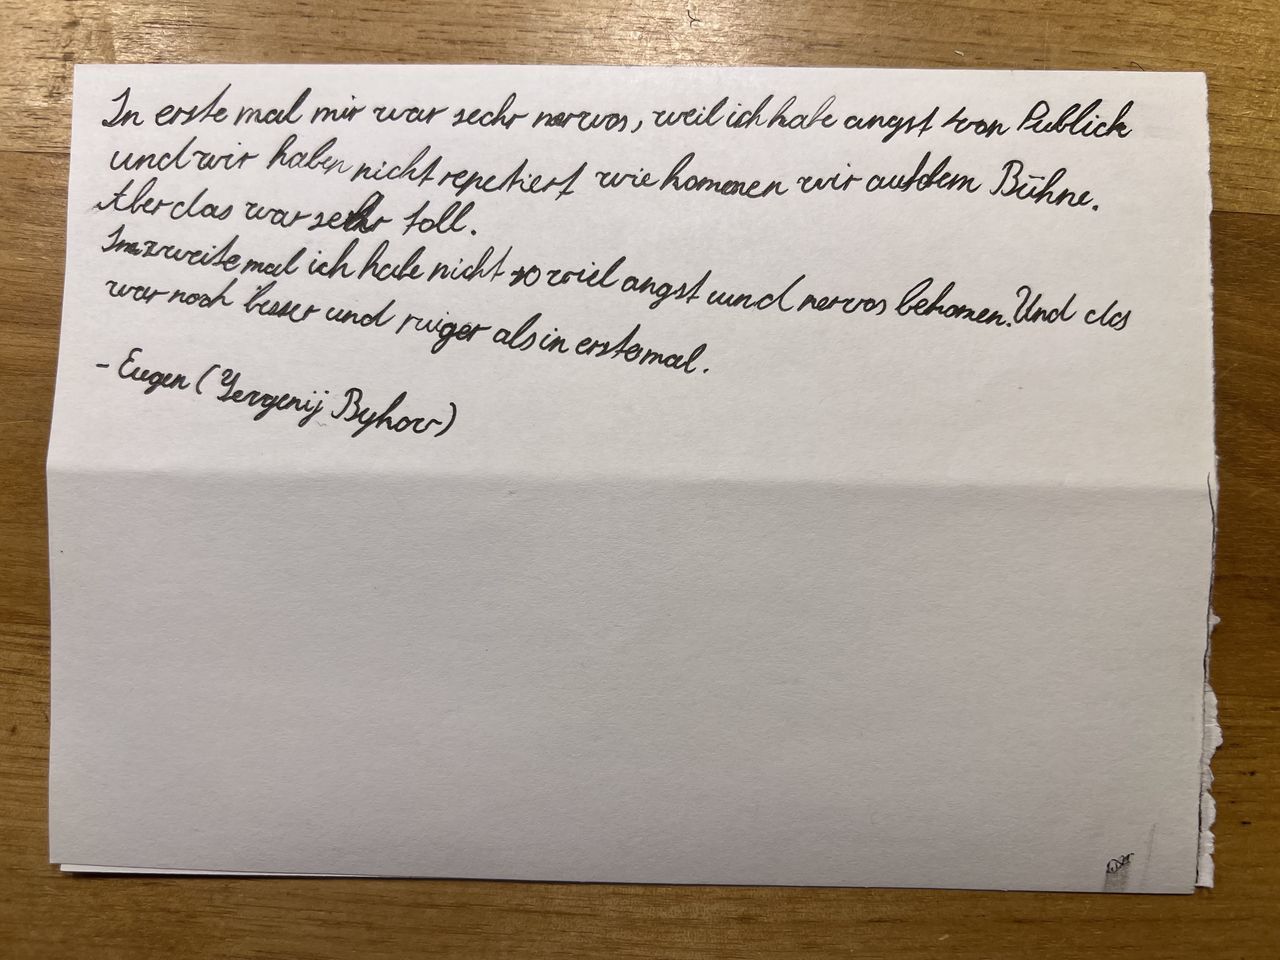 In erste mal mir war sechr nervos, weil ich habe angst von Publick
und wir haben nicht repetiert wie kommen wir auf dem Bühne.
Aber das war sehr toll.
Im zweite mal ich habe nicht so viel angst und nervos bekomen. Und das
war noch besser und ruiger als in erste mal.
- Eugen (Yevgenij Byhov)